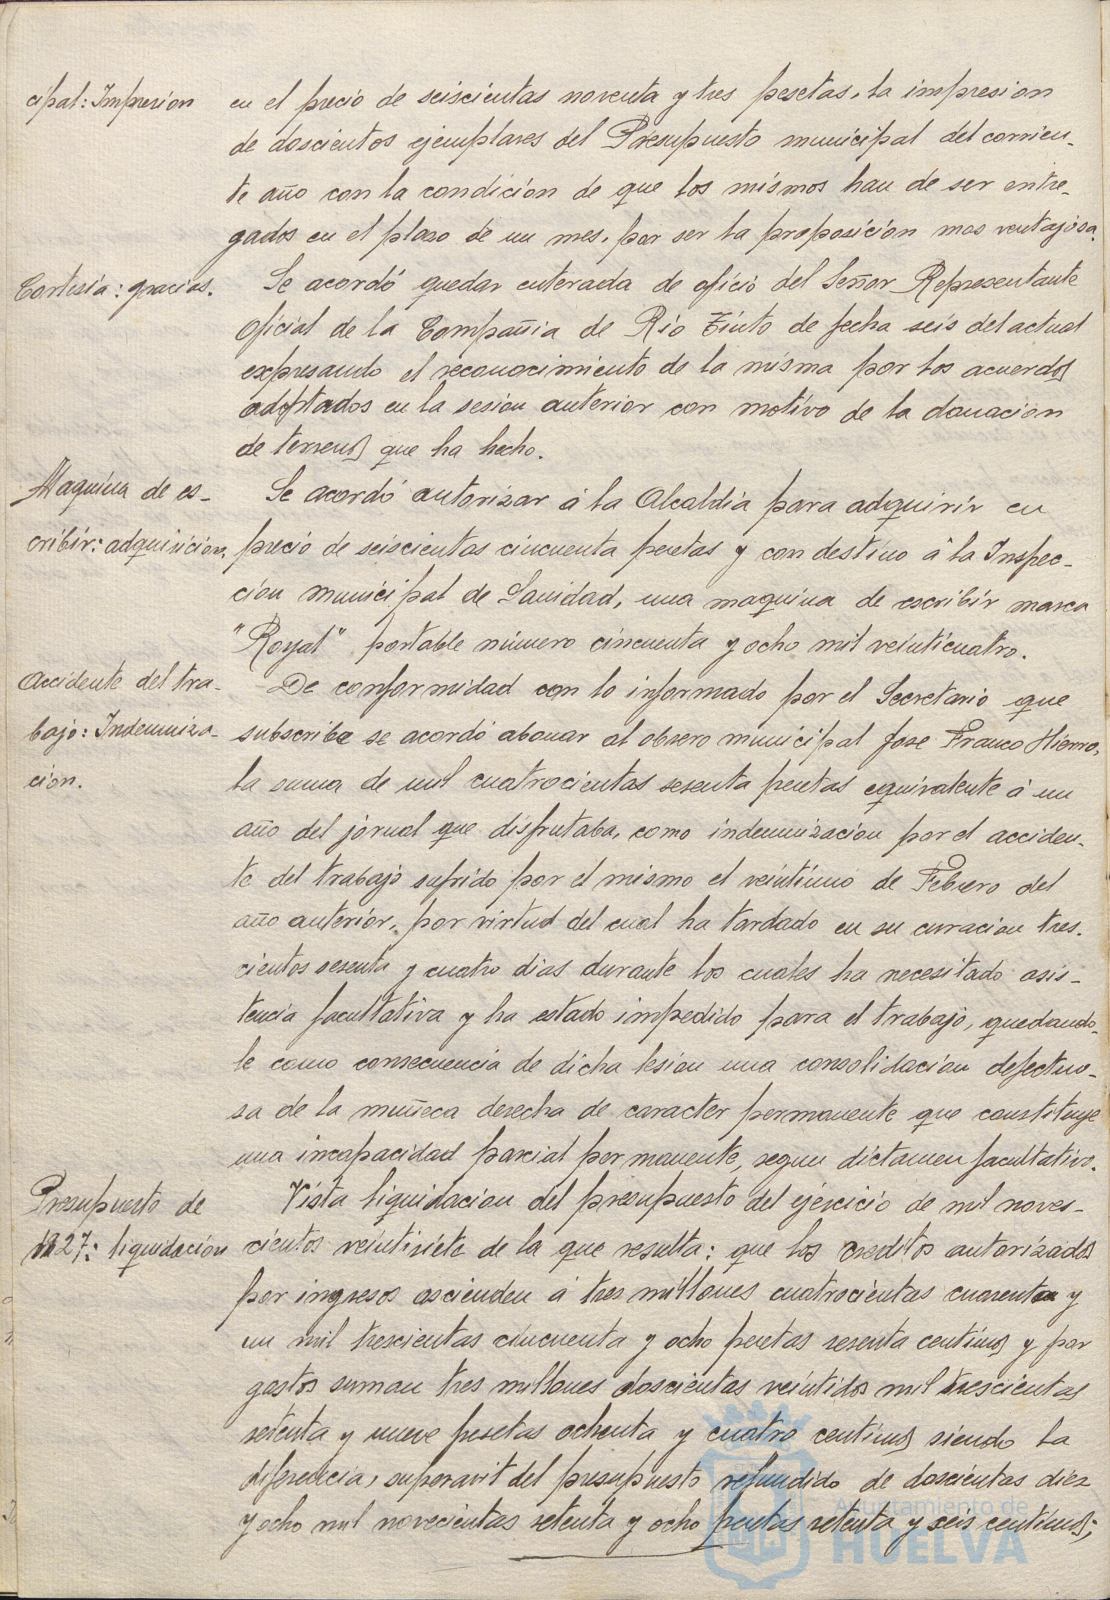 cipal: Impresion
en el precio de seiscientas noventa y tres pesetas, la impresion
de doscientos ejemplares del Presupuesto municipal del corrien-
te año con la condicion de que los mismos han de ser entre-
gados en el plaso de un mes, por ser la proposicion mas ventajosa.
Cortesia: gracias.
Se acordó quedar enterada de oficio del Señor Representante
Oficial de la Compañia de Rio Tinto de fecha seis del actual
expresando el reconocimiento de la misma por los acuerdos
adoptados en la sesion anterior con motivo de la donacion
de terrenos que ha hecho.
Maquina de es-
cribir: adquisicion.
Se acordó autorizar á la Alcaldia para adquirir en
precio de seiscientas cincuenta pesetas y con destino á la Inspec-
cion municipal de Sanidad, una maquina de escribir marca
"Royal" portable número cincuenta y ocho mil veinticuatro.
Accidente del tra-
bajo: Indemniza-
cion.
De conformidad con lo informado por el Secretario que
subscribe se acordó abonar al obrero municipal Jose Franco Hierro,
la suma de mil cuatrocientas sesenta pesetas equivalente á un
año del jornal que disfrutaba, como indemnizacion por el acciden-
te del trabajo sufrido por el mismo el veintiuno de Febrero del
año anterior, por virtud del cual ha tardado en su curacion tres-
cientos sesenta y cuatro dias durante los cuales ha necesitado asis-
tencia facultativa y ha estado impedido para el trabajo, quedando-
le como consecuencia de dicha lesion una consolidacion defectuo-
sa de la muñeca derecha de caracter permanente que constituye
una incapacidad parcial permanente, segun dictamen facultativo.
Presupuesto de
1927: liquidación
Vista liquidacion del presupuesto del ejercicio de mil noves-
cientos veintisiete de la que resulta: que los creditos autorizados
por ingresos ascienden á tres millones cuatrocientas cuarenta y
un mil trescientas cincuenta y ocho pesetas sesenta centimos y por
gastos suman tres millones doscientas veintidos mil trescientas
setenta y nueve pesetas ochenta y cuatro centimos siendo la
diferencia, superavit del presupuesto refundido de doscientas diez
y ocho mil novecientas setenta y ocho pesetas setenta y seis centimos;
Ayuntamiento de
HUELVA